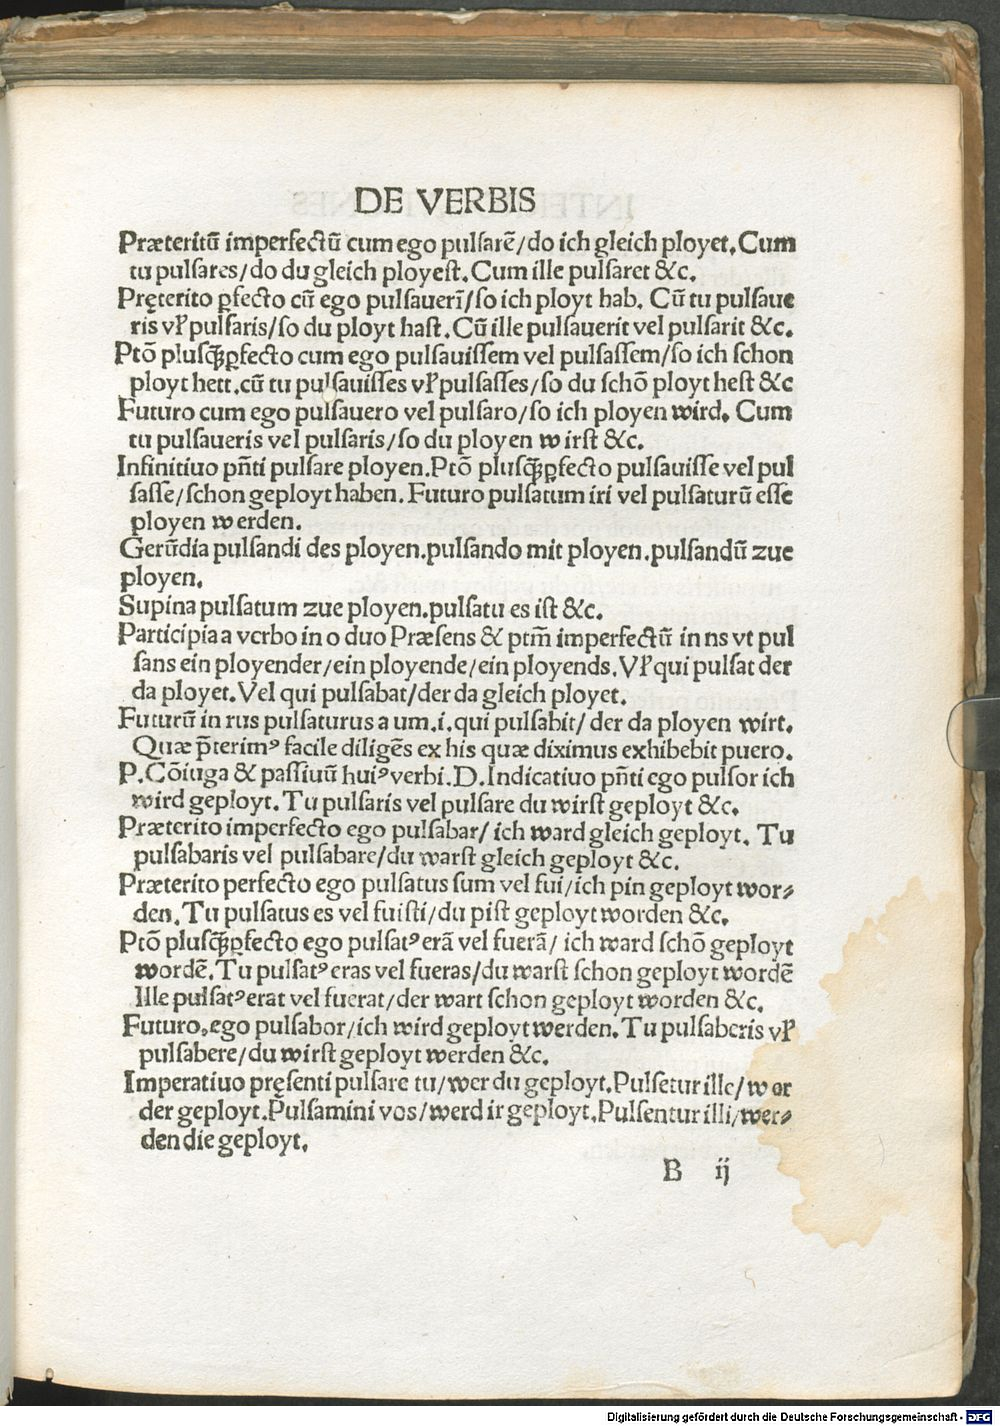 DE VERBIS
Præteritū imperfectū cum ego pulsarē/do ich gleich ployet.Cum
tu pulsares/do du gleich ployest.Cum ille pulsaret &c.
Pręterito ꝑfecto cū ego pulsauerī/so ich ployt hab. Cū tu pulsaue
ris vł pulsaris/so du ployt hast. Cū ille pulsauerit vel pulsarit &c.
Ptō plusq̄ꝑfecto cum ego pulsauissem vel pulsassem/so ich schon
ployt hett.cū tu pulsauisses vł pulsasses/so du schō ployt hest &c
Futuro cum ego pulsauero vel pulsaro/so ich ployen wird. Cum
tu pulsaueris vel pulsaris/so du ployen wirst &c.
Infinitiuo pn̄ti pulsare ployen.Ptō plusq̄ꝑfecto pulsauisse vel pul
sasse/schon geployt haben. Futuro pulsatum iri vel pulsaturū esse
ployen werden.
Gerūdia pulsandi des ployen.pulsando mit ployen.pulsandū zue
ployen.
Supina pulsatum zue ployen.pulsatu es ist &c.
Participia a verbo in o duo Præsens & ptm̄ imperfectū in ns vt pul
sans ein ployender/ein ployende/ein ployends. Vł qui pulsat der
da ployet. Vel qui pulsabat/der da gleich ployet.
Futurū in rus pulsaturus a um.i.qui pulsabit/ der da ployen wirt.
Quæ p̄terimꝰ facile diligēs ex his quæ diximus exhibebit puero.
P. Cōiuga & passiuū huiꝰ verbi. D. Indicatiuo pn̄ti ego pulsor ich
wird geployt. Tu pulsaris vel pulsare du wirst geployt &c.
Præterito imperfecto ego pulsabar/ ich ward gleich geployt. Tu
pulsabaris vel pulsabare/du warst gleich geployt &c.
Præterito perfecto ego pulsatus sum vel fui/ich pin geployt wor⸗
den. Tu pulsatus es vel fuisti/du pist geployt worden &c.
Ptō plusq̄ꝑfecto ego pulsatꝰ erā vel fuerā/ ich ward schō geployt
wordē. Tu pulsatꝰ eras vel fueras/du warst schon geployt wordē
Ille pulsatꝰ erat vel fuerat/der wart schon geployt worden &c.
Futuro.ego pulsabor/ich wird geployt werden. Tu pulsaberis vł
pulsabere/du wirst geployt werden &c.
Imperatiuo pręsenti pulsare tu/wer du geployt.Pulsetur ille/wer
der geployt.Pulsamini vos/werd ir geployt.Pulsentur illi/wer⸗
den die geployt.
B ij
Digitalisierung gefördert durch die Deutsche Forschungsgemeinschaft - DFG